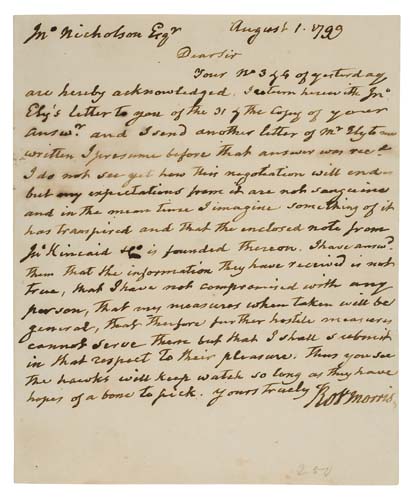 Jno Nicholson Esqr August 1. 1799
Dear Sir
Your No 3 & 4 of yesterday
are hereby acknowledged. I return herewith Jno
Ely's letter to you of the 31 & the Copy of your
answr. and I send another letter of Mr Ely to me
written I presume before that answer was recd.
I do not see yet how this negotiation will end
but my expectations from it are not sanguine
and in the mean time I imagine something of it
has transpired and that the enclosed note from
Jno Kincaid &Co is founded thereon. I have answd.
them that the information they have received is not
true, that I have not compromised with any
person, that my measures when taken will be
general, that therefore further hostile measures
cannot serve them but that I shall submit
in that respect to their pleasure. Thus you see
the hawks will keep watch so long as they have
hopes of a bone to pick. Yours truely Robt Morris
250